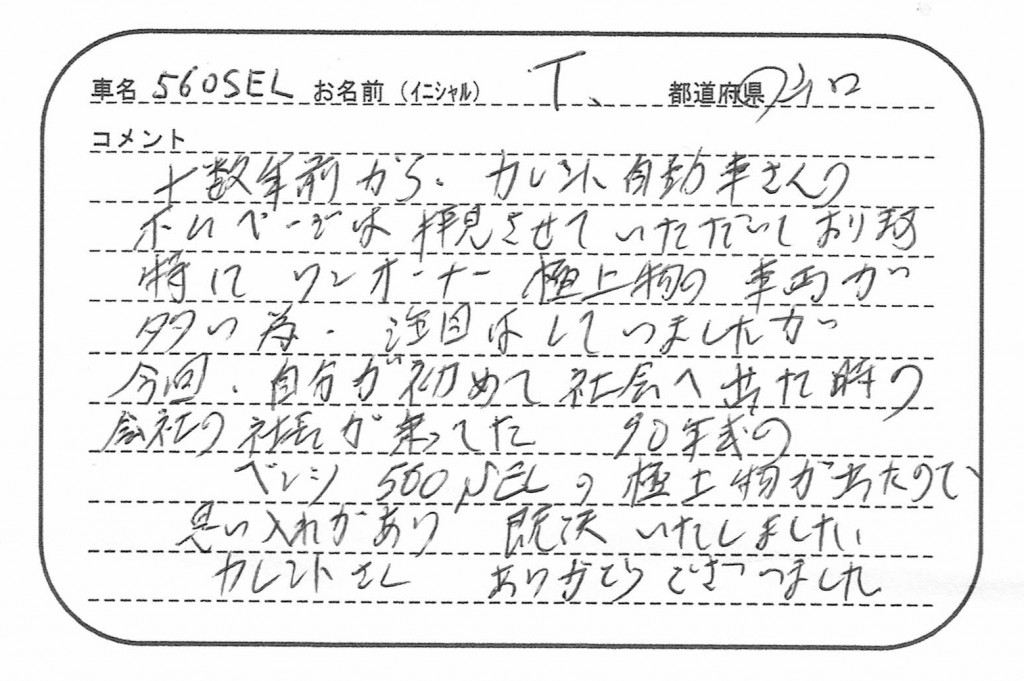 車名 560SEL お名前（イニシャル） T、 都道府県
コメント
十数年前から、カレント自動車さんの
ホムページは拝見させていただいております
特に ワンオーナー 極上物の車両が
多い為、注目はしていましたが
今回、自分が初めて社会へ出た時の
会社の社長が乗ってた 90年式の
ベンツ 560SELの極上物が出たので、
思い入れがあり 即決いたしました。
カレントさん ありがとうございました